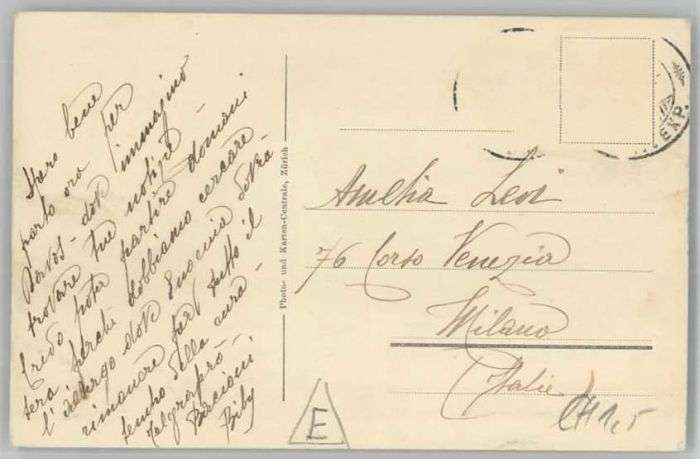 Spero bene
parto ora per
Davos - dove immagino
trovare tue notizie -
Credo poter partire domani
sera perchè dobbiamo cercare
l'albergo dove Eugenia dovrà
rimanere per tutto il
tempo della cura -
Telgraferò -
Bacioni
Biby
Photo- und Karten-Centrale, Zürich
EXP.
Amelia Levi
76 Corso Venezia
Milano
Italie
E